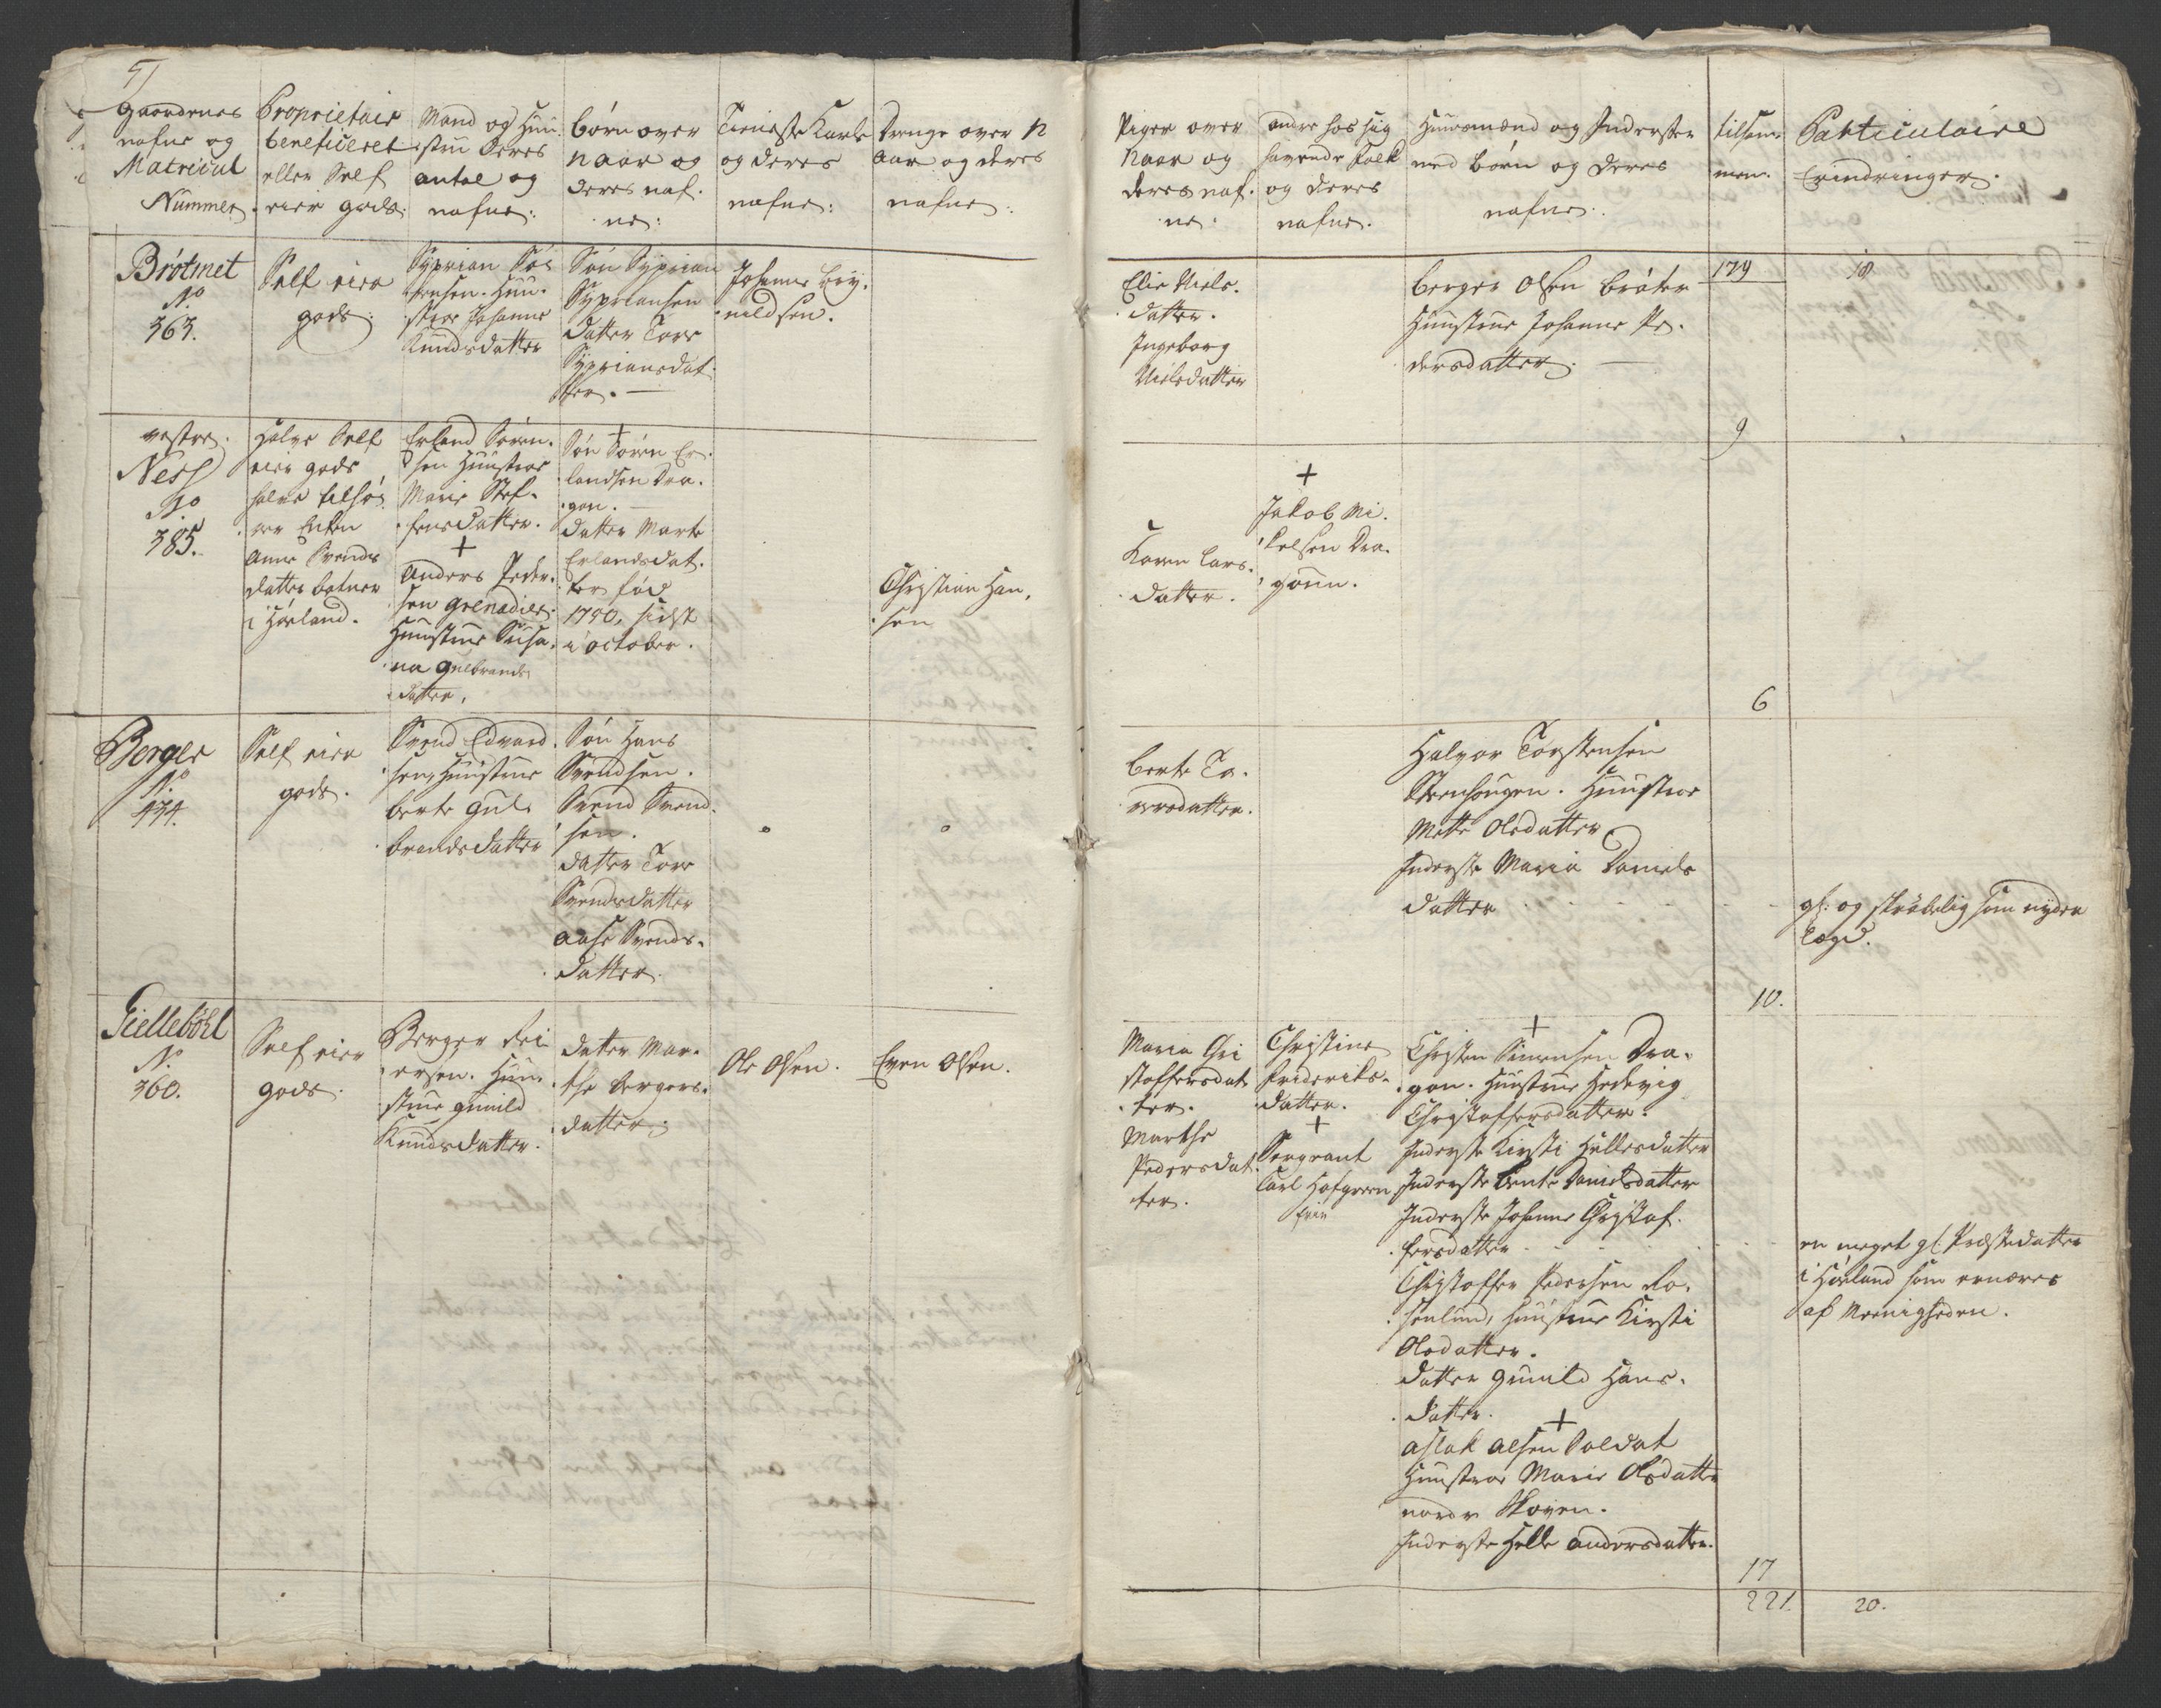 5/
Gaardenes
nafne og
Matricul
Nummer.
Proprietair
beneficeret
eller Self
eier gods.
Mand og Huu
stru deres
antal og
nafne:
børn over
12 aar og
deres naf.
ne:
Tieneste Karle
og deres
nafne:
Drenge over 12
aar og deres
nafne:
Piger over
12 aar og
deres naf.
ne:
andre hos sig
havende Folk
og deres
nafne.
Huusmænd og Inderster
med børn og deres
nafne:
tilsam
men.
Particulaire
Erindringer.
Brøtmet
No
363.
Self eier
gods.
Syprian Sø
rensen. Huu.
stroe Johanne
Knudsdatter
Søn Syprian
Sypriansen
Datter Tore
Spriansdat
ter.
Johannes Bry.
nildsen.
Elie Niels.
datter.
Ingeborg
Nielsdatter
Berger Olsen Brøter
Huustrue Johanne Pe.
dersdatter.
179
18
9
vestre.
Ness
No
385.
Halve Self
eier gods
halve tilhø
rer Enken
Anne Svends
datter boener
i Høland.
Erland Søren.
sen Huustroe
Marie Stef.
fensdatter.
+
Anders Peder.
sen Grenadier
Huustrue Susa.
na Gulbrands
datter.
+
Søn Søren Er.
landsen Dra.
gon.
Datter Marte
Erlandsdat.
ter fød
1750, sidst
i October.
Christian Han.
sen
Karen Lars.
datter.
+
Jakob Mi.
kelsen Dra.
goun.
6
Berger
No
434.
Self eier
gods.
Svend Edvard
sen, Huustrue
Berte Gul
brandsdatter
Søn Hans
Svendsen.
Svend Svend.
sen.
Datter Tore
Svendsdatter
Aase Svends.
datter.
Berte To.
rersdatter.
Halvor Torstensen
Steenhougen. Huustroe
Mette Olsdatter
Inderste Maria Daniels
datter
gl: og skrøbelig som nyder
Lægd.
10.
Giellebøhl
No
360.
Self eier
gods.
Berger Rei
ersen. Huu.
strue Gunild
Knudsdatter.
Datter Mar.
the Bergers.
datter.
Ole Olsen.
Even Olsen.
Maria Chri
stoffersdat
ter.
Marthe
Pedersdat
ter.
Christine
Frideriks.
datter.
+
Sergeant
Carl Hofgreen
frie
+
Christen Simensen Dra.
gon. Huustrue Hedevig
Christoffersdatter.
Inderste Kirsti Hellesdatter
Inderste Bente Danielsdatter
Inderste Johanne Christof.
fersdatter
Christoffer Pedersen Ro.
senlund, Huustrue Kirsti
Olsdatter.
Datter Gunild Hans.
datter.
+
Aslak Olsen Soldat
Huustroe Marie Olsdatter
nordre Skoven.
Inderste Helle Andersdatter.
en meget gl: Præstedatter
i Høland som ernæres
af Meenigheden.
17
221.
20.